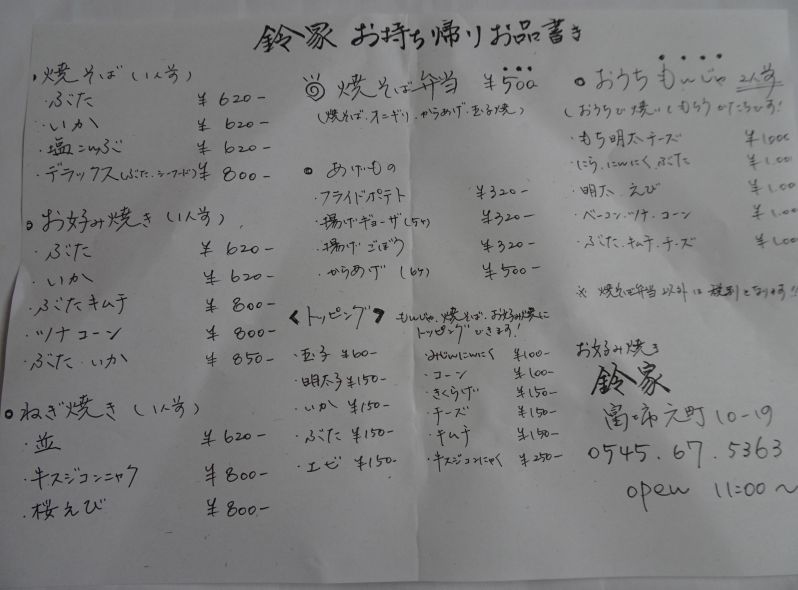 鈴家 お持ち帰りお品書き
・焼そば(1人前)
・ぶた ¥620-
・いか ¥620-
・塩こんぶ ¥620-
・デラックス(ぶた・シーフード) ¥800-
◎お好み焼き(1人前)
・ぶた ¥620-
・いか ¥620-
・ぶたキムチ ¥800-
・ツナコーン ¥800-
・ぶた・いか ¥850-
◎ねぎ焼き(1人前)
・並 ¥620-
・牛スジコンニャク ¥800-
・桜えび ¥800-
◎焼そば弁当 ¥500
(焼そば・オニギリ・からあげ・玉子焼)
◎あげもの
・フライドポテト ¥320-
・揚げギョーザ(5ヶ) ¥320-
・揚げごぼう ¥320-
・からあげ(6ヶ) ¥500-
<トッピング> もんじゃ、焼そば、お好み焼に
トッピングできます!
・玉子 ¥60-
・明太子 ¥150-
・いか ¥150-
・ぶた ¥150-
・エビ ¥150-
・みじんにんにく ¥100-
・コーン ¥100-
・きくらげ ¥150-
・チーズ ¥150-
・キムチ ¥150-
・牛スジコンにゃく ¥250-
◎おうちもんじゃ 2人前
(おうちで焼いてもらうかたちです!
・もち明太チーズ ¥1.000
・にら、にんにく、ぶた ¥1.00
・明太、えび ¥1.00
・ベーコン・ツナ・コーン ¥1.00
・ぶた、キムチ、チーズ ¥1.00
※焼そば弁当以外は税別となります!!
お好み焼き
鈴家
富士市元町10-19
0545.67.5363
open 11:00〜